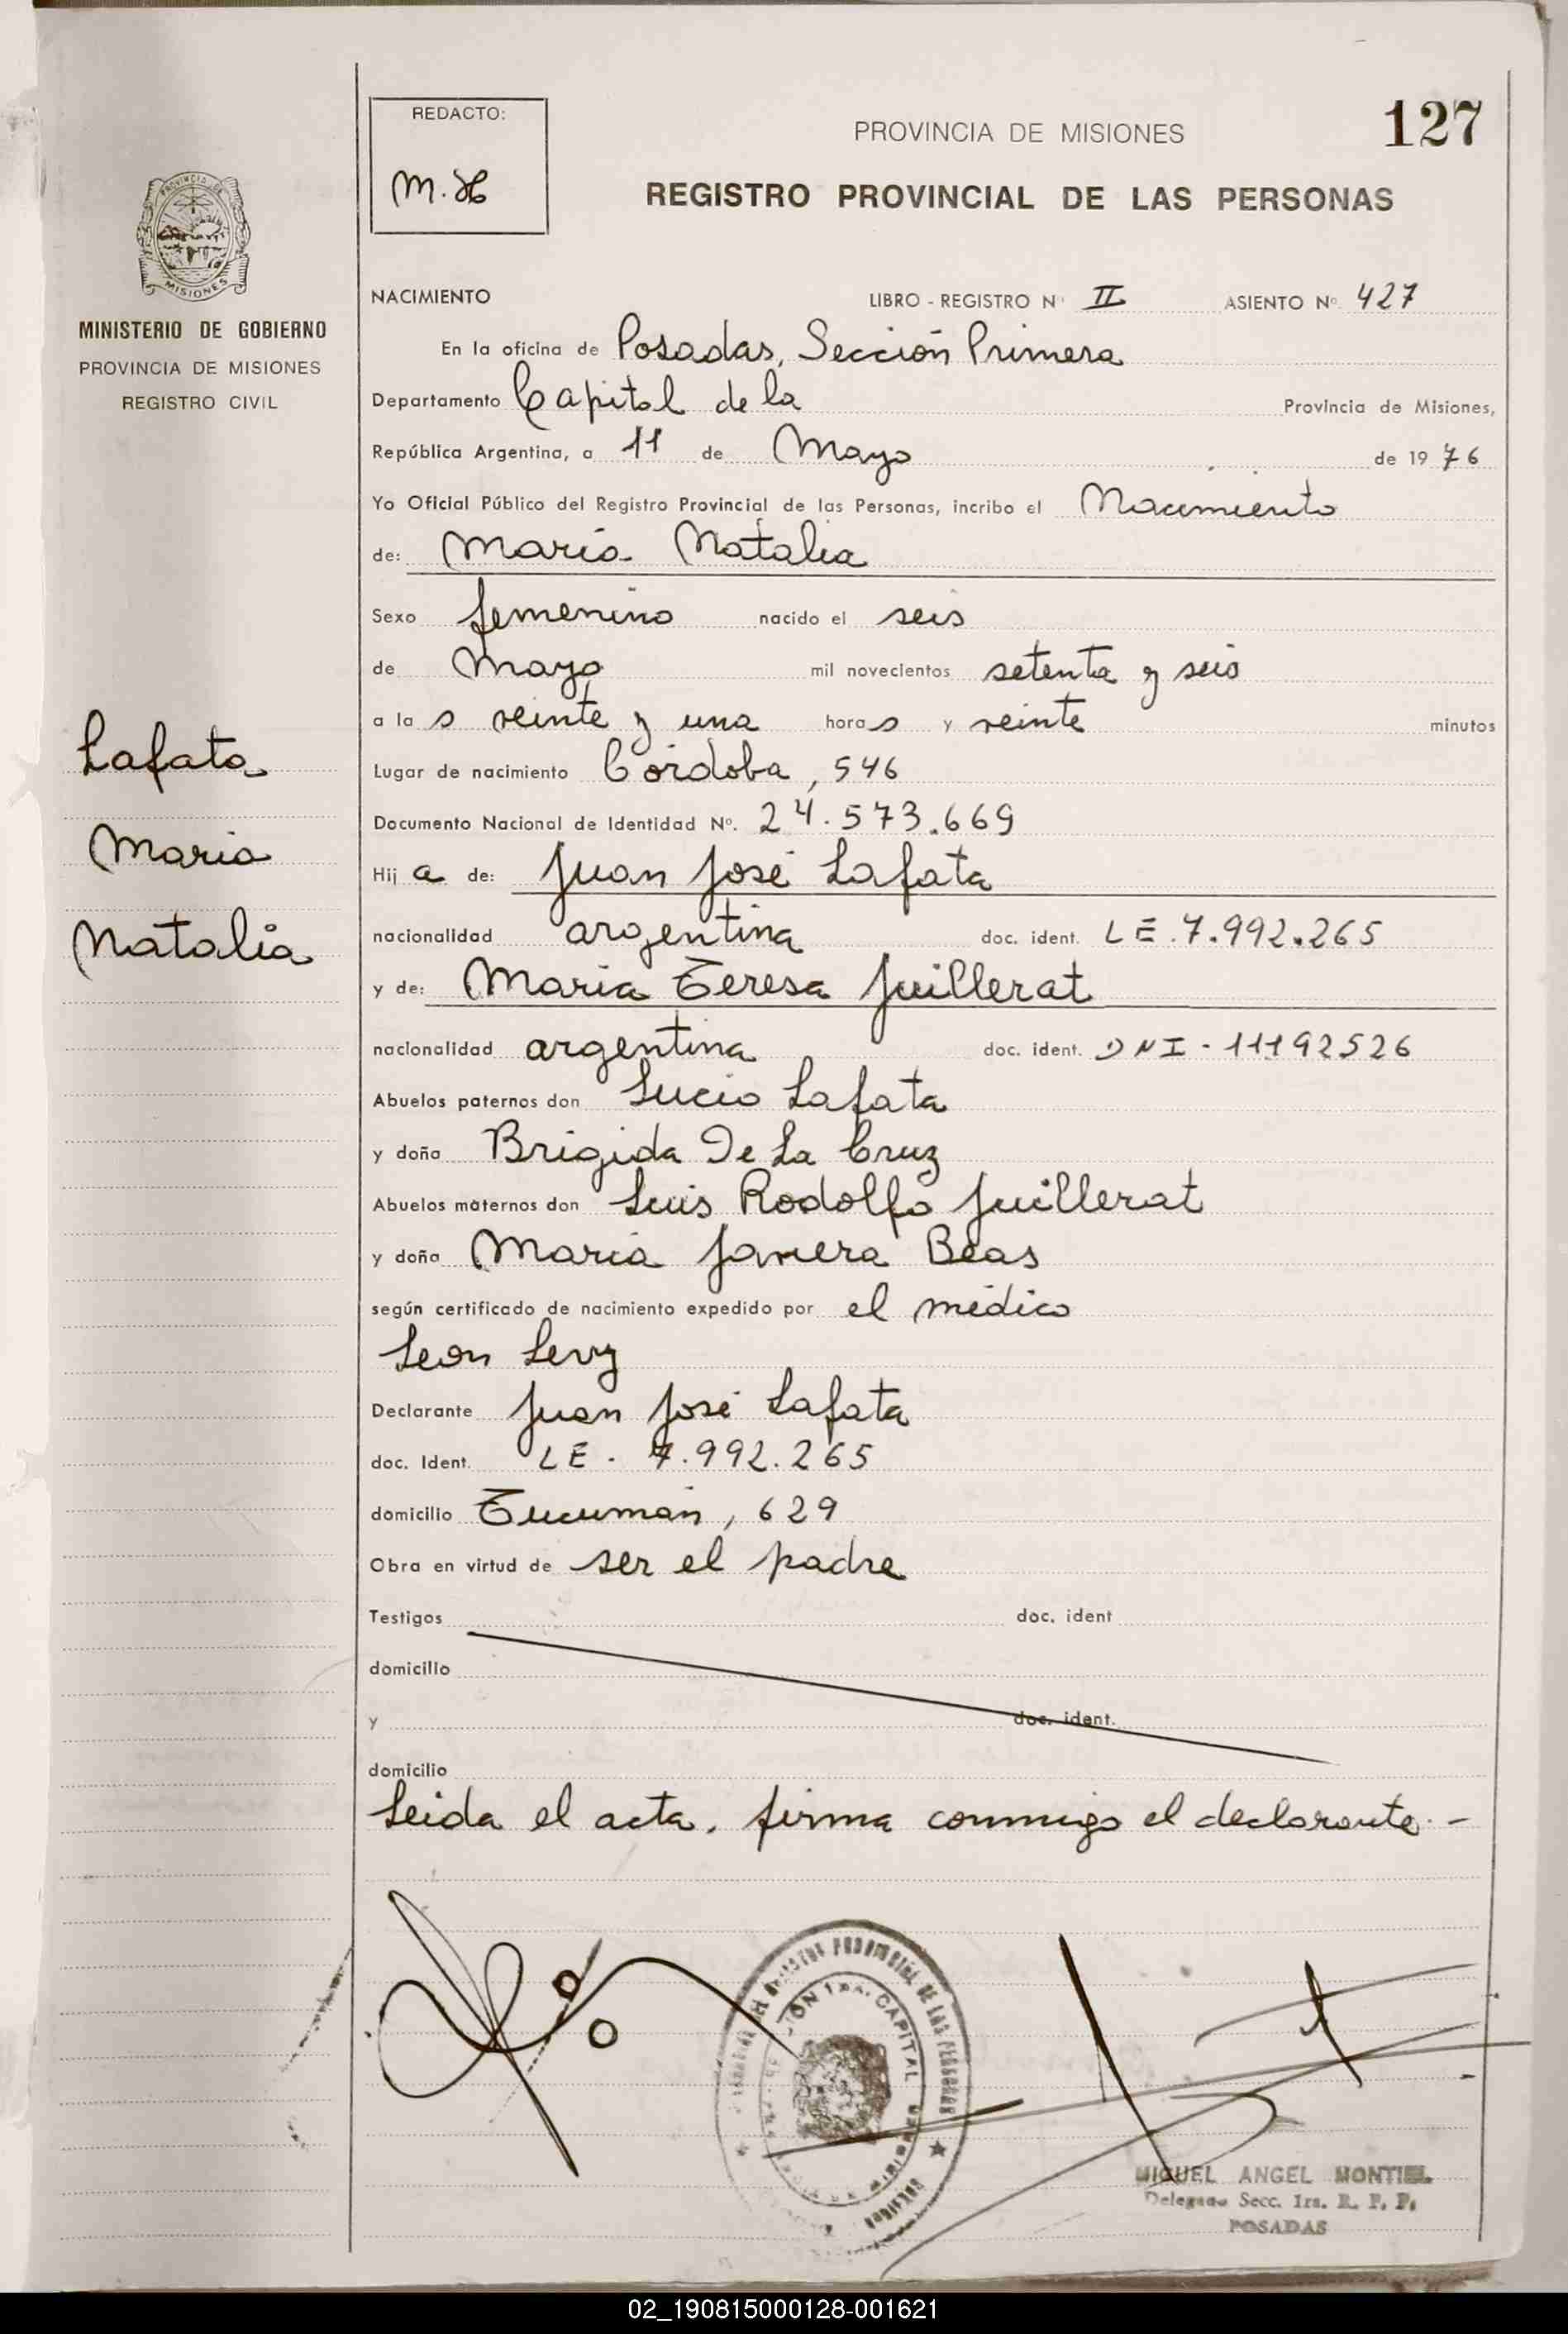 REDACTO:
M.H
PROVINCIA DE MISIONES
127
REGISTRO PROVINCIAL DE LAS PERSONAS
PROVINCIA DE
MISIONES
MINISTERIO DE GOBIERNO
PROVINCIA DE MISIONES
REGISTRO CIVIL
Lafata
Maria
Natalia
NACIMIENTO LIBRO - REGISTRO Nº II ASIENTO Nº 427
En la oficina de Posadas, Sección Primera
Departamento Capital de la Provincia de Misiones,
República Argentina, a 11 de Mayo de 1976
Yo Oficial Público del Registro Provincial de las Personas, incribo el Nacimiento
de: María Natalia
Sexo femenino nacido el seis
de Mayo mil novecientos setenta y seis
a la s veinte y una hora s y veinte minutos
Lugar de nacimiento Córdoba, 546
Documento Nacional de Identidad Nº. 24.573.669
Hij a de: Juan José Lafata
nacionalidad argentina doc. ident. LE.7.992.265
y de: María Teresa Juillerat
nacionalidad argentina doc. ident. DNI - 11192526
Abuelos paternos don Lucio Lafata
y doña Brigida De La Cruz
Abuelos maternos don Luis Rodolfo Juillerat
y doña María Javiera Beas
según certificado de nacimiento expedido por el médico
Leon Levy
Declarante Juan José Lafata
doc. Ident. LE. 7.992.265
domicilio Tucumán, 629
Obra en virtud de ser el padre
Testigos doc. ident
domicilio
y doc. ident.
domicilio
Leida el acta, firma conmigo el declarante.-
CAPITAL
MIGUEL ANGEL MONTIEL
Delegado Secc. 1ra. R. P. P.
POSADAS
02_190815000128-001621